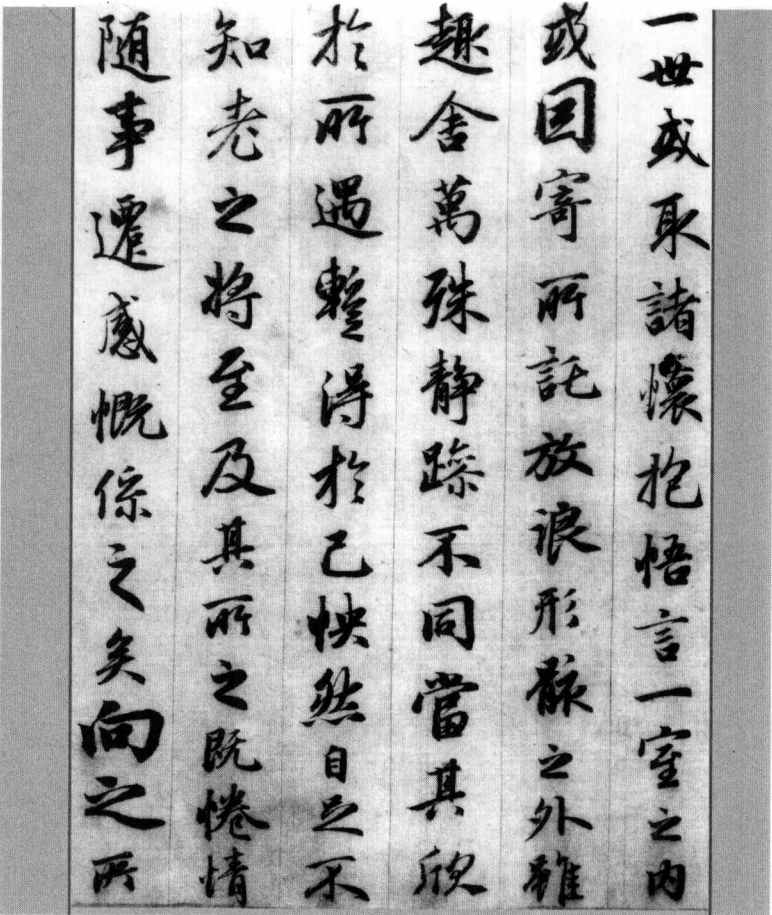 一世或取諸懷抱悟言一室之內
或因寄所託放浪形骸之外雖
趣舍萬殊靜躁不同當其欣
於所遇蹔得於己怏然自足不
知老之將至及其所之既惓情
隨事遷感慨係之矣向之所